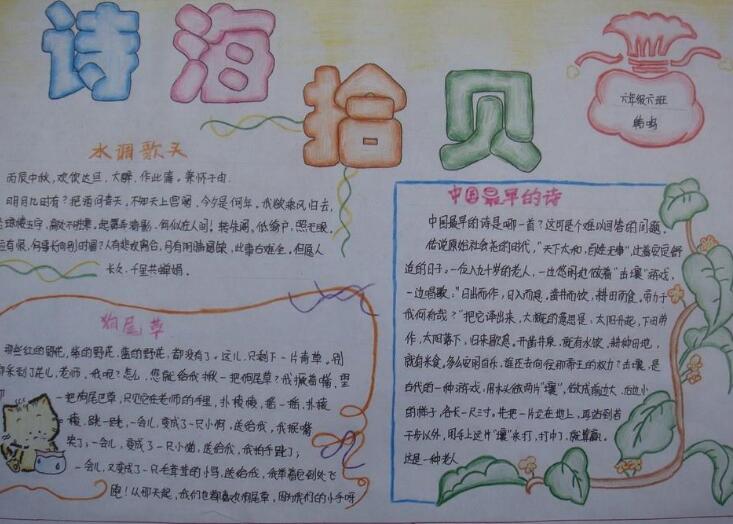 诗海拾贝
六年级六班
水调歌头
丙辰中秋,欢饮达旦,大醉,作此篇。兼怀子由
明月几时有?把酒问青天,不知天上宫阙,今夕是何年,我欲乘风归去,
琼楼玉宇,高处不胜寒。起舞弄清影,何似在人间!转朱阁,低绮户,照无眠。
应有恨,何事长向别时圆?人有悲欢离合,月有阴晴圆缺,此事古难全。但愿人
长久,千里共婵娟。
狗尾草
那些红的野花,紫的野花,蓝的野花,都没有了。这儿,只剩下一片青草。别
采到了花儿,老师,我呢?怎么,您能给我揪一把狗尾草?我撅着嘴,望
一把狗尾草,只见它在老师的手里,
跳一跳,一会儿,变成了一只小狗,送给我,我抿嘴
笑了;一会儿,变成了一只小猫,送给我,我拍手跳了;
一会儿,又变成了一只毛茸茸的小鸟,送给我,我举着它到处飞
跑!从那天起,我们也都喜欢狗尾草,因为我们的小手呀
中国最早的诗
中国最早的诗是哪一首?这可是个难以回答的问题。
传说原始社会尧的时代,“天下太和,百姓无事”,过着安定舒
适的日子。一位八九十岁的老人,一边悠闲地做着“击壤”游戏,
一边唱歌:“日出而作,日入而息。凿井而饮,耕田而食。帝力于
我何有哉?”把它译出来,大概的意思是:太阳升起,下田劳
作,太阳落下,归来歇息。开凿井泉,就有水饮,耕种田地,
就有米食。多么安闲自乐,谁还去向往那帝王的权力?击壤,是
古代的一种游戏,用木头做两片“壤”,做成前边大,后边小
的梯子,各长一尺三寸。先把一片立在地上,再站到若
干步以外,用手上这片“壤”来打,打中了,就算赢。
这是一种老人